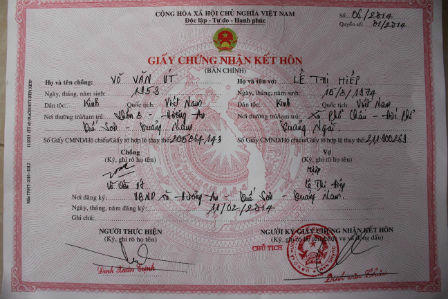 CỘNG HÒA XÃ HỘI CHỦ NGHĨA VIỆT NAM
Độc lập - Tự do - Hạnh phúc
Số: 06/2014
Quyển số: 01/2014
GIẤY CHỨNG NHẬN KẾT HÔN
(BẢN CHÍNH)
Họ và tên chồng: VÕ VĂN ÚT Họ và tên vợ: LÊ THỊ HIỆP
Ngày, tháng, năm sinh: 1953 Ngày, tháng, năm sinh: 10/3/1974
Dân tộc: Kinh Quốc tịch: Việt Nam Dân tộc: Kinh Quốc tịch: Việt Nam
Nơi thường trú/tạm trú: Nơi thường trú/tạm trú: Xã Phổ Châu - Đức Phổ
Quế Sơn - Quảng Nam Quảng Ngãi
Số Giấy CMND/Hộ chiếu/Giấy tờ hợp lệ thay thế: Số Giấy CMND/Hộ chiếu/Giấy tờ hợp lệ thay thế:
Chồng Vợ
(Ký, ghi rõ họ tên) (Ký, ghi rõ họ tên)
Hiệp
Lê Thị Hiệp
Nơi đăng ký: UBND xã Hương An - Quế Sơn - Quảng Nam
Ngày, tháng, năm đăng ký: 11/02/2014
Ghi chú:
NGƯỜI THỰC HIỆN NGƯỜI KÝ GIẤY CHỨNG NHẬN KẾT HÔN
(Ký, ghi rõ họ tên)
CHỦ TỊCH